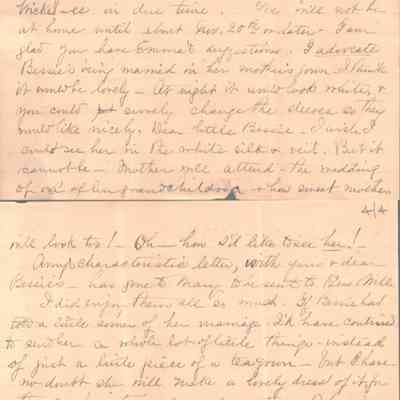 Nickel-ee in due time. We will not be
at home until about Nov. 20th or later. I am
glad you have Emma's suggestions. I advocate
Bessie's being married in her mother's gown. I think
it would be lovely - At night it would look white, &
you could surely change the sleeves so they
would like nicely. Dear little Bessie - I wish I
could see her in the white silk & veil. But it
cannot be - Mother will attend the wedding
of one of her grandchildren & how sweet mother
4/4
will look too! - Oh - how I'd like to see her! -
Amy's characteristic letter, with yours & dear
Bessie's - has gone to Mary to be sent to Bess Mills.
I did enjoy them all so much. If Bessie had
told a little sooner of her marriage I'd have contrived
to send her a whole lot of little things - instead
of just a little piece of a tea gown - but I have
no doubt she will make a lovely dress of it for